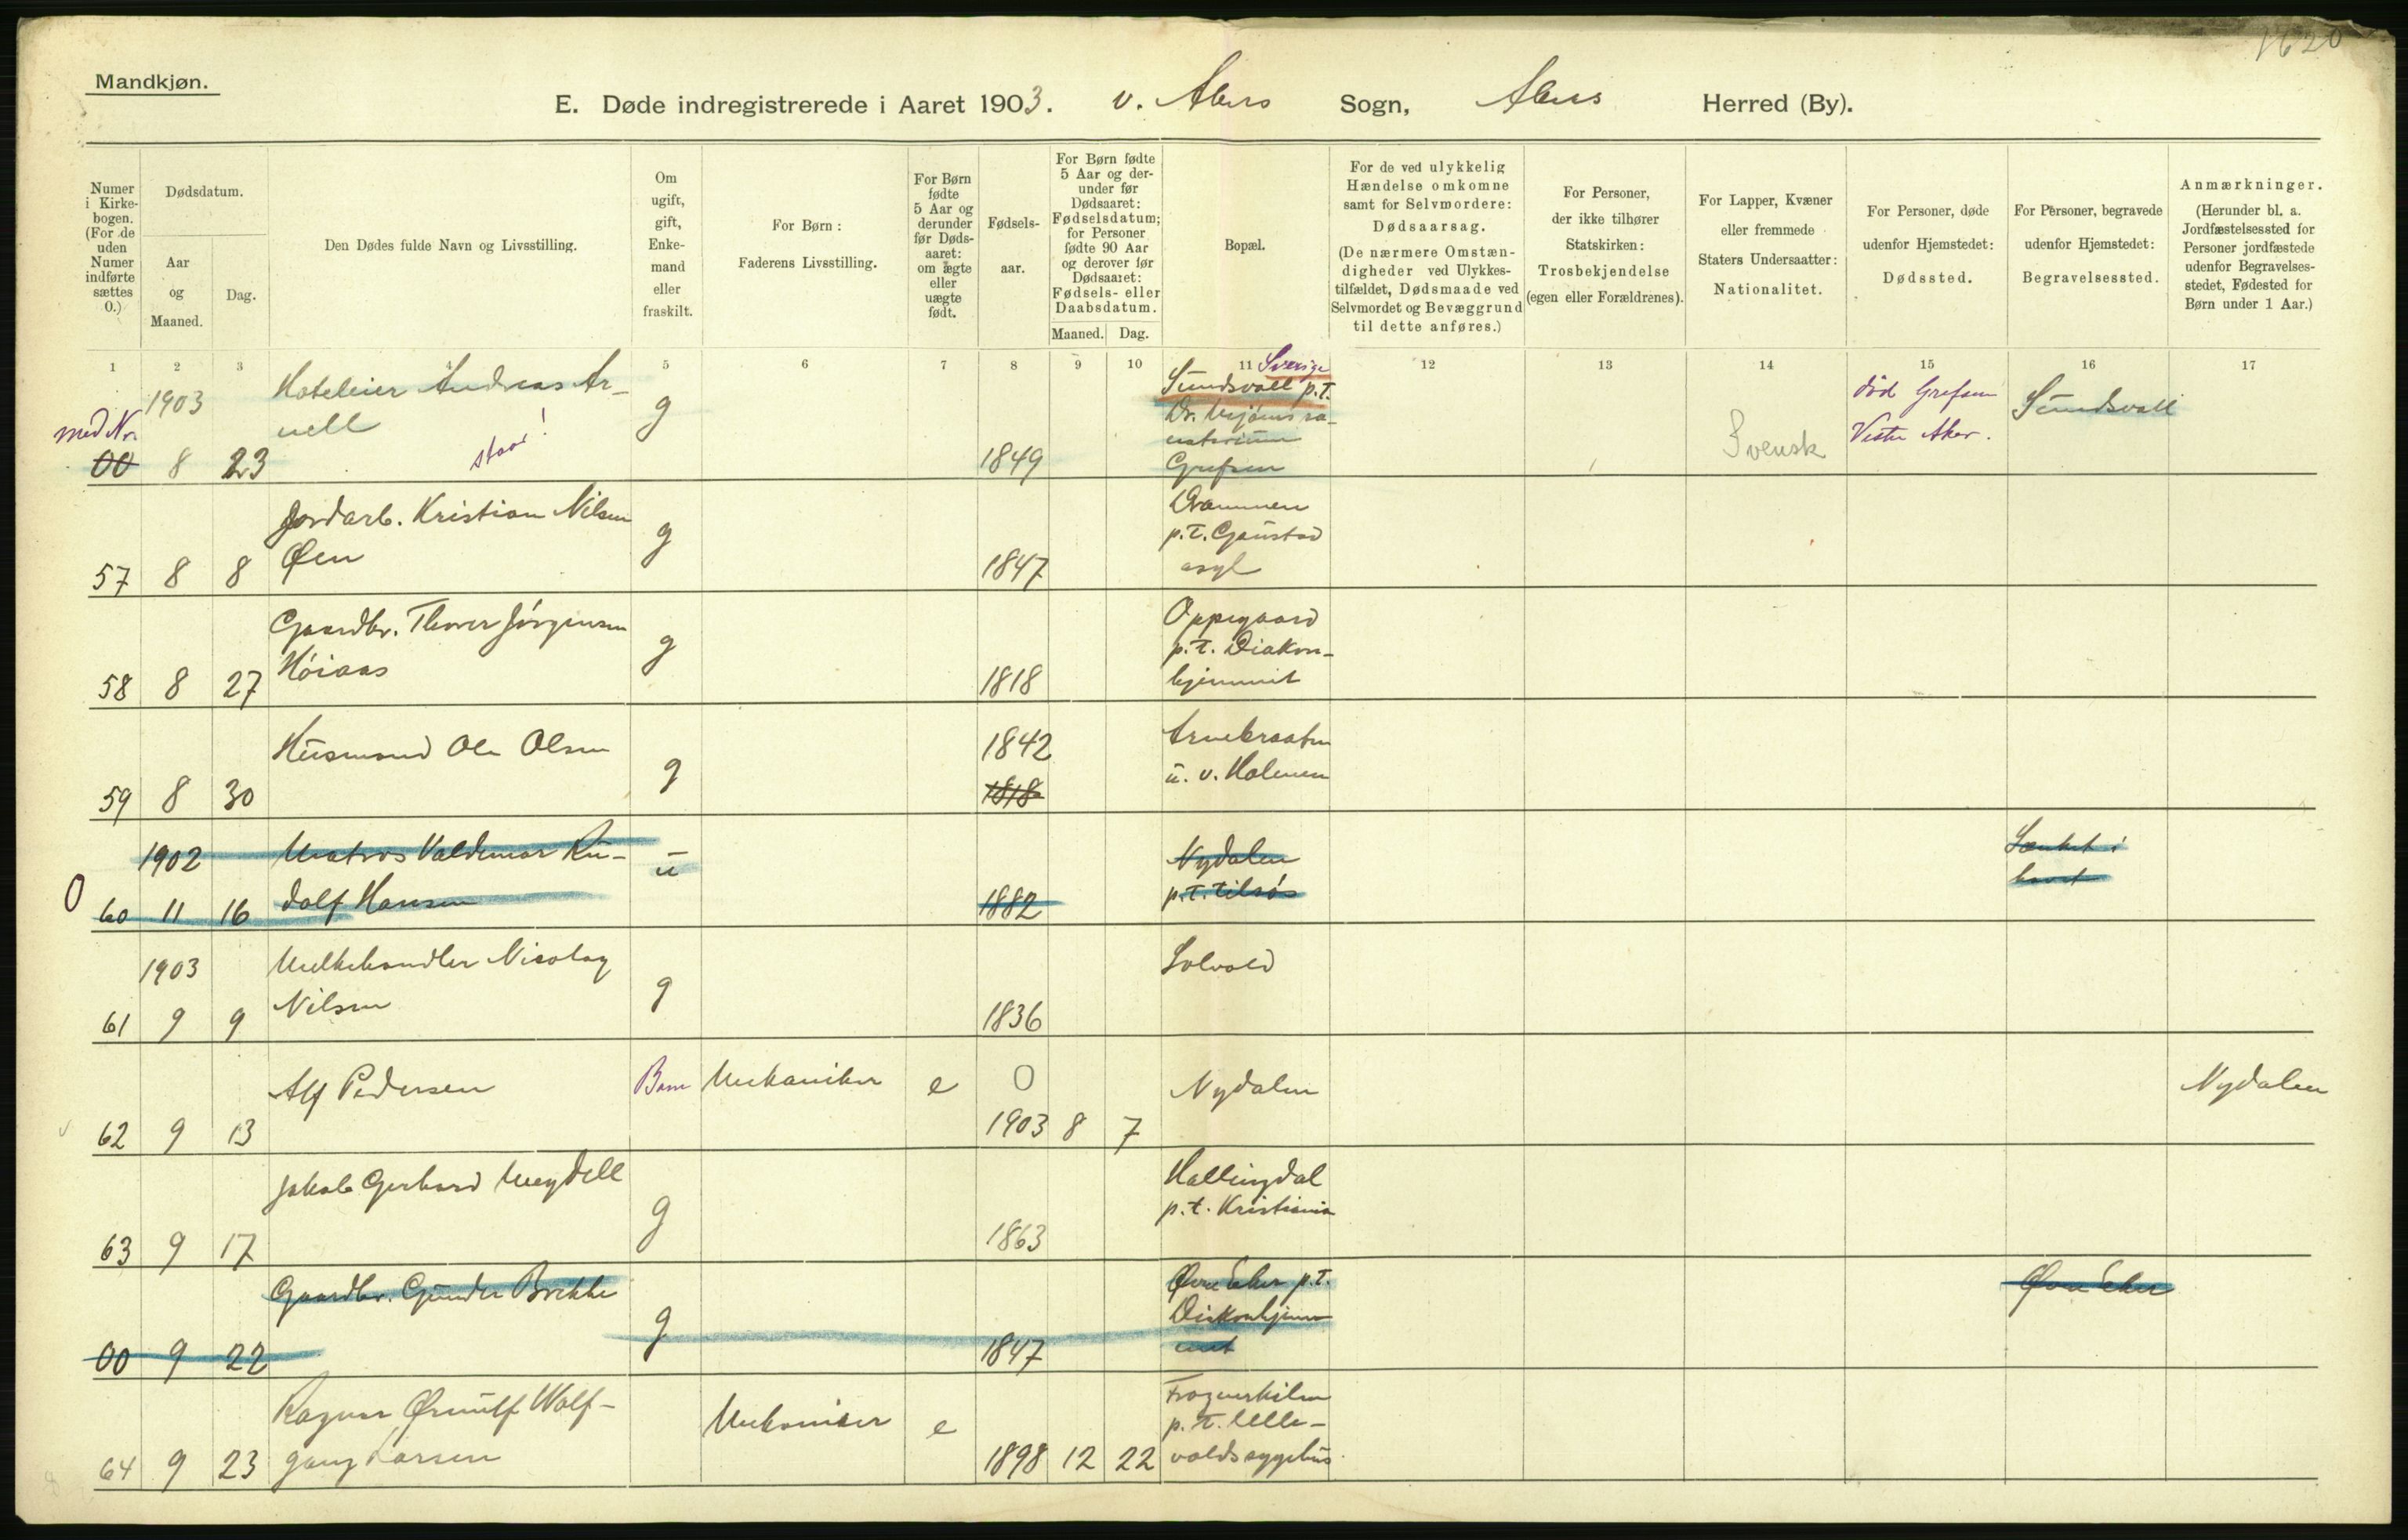 1620
Mandkjøn.
E. Døde indregistrerede i Aaret 1903. v. Akers Sogn, Akers Herred (By).
Numer i Kirke-bogen. (For de uden Numer indførte sættes 0.)
Dødsdatum.
Aar og Maaned.
Dag.
Den Dødes fulde Navn og Livsstilling.
Om ugift, gift, Enke-mand eller fraskilt.
For Børn: Faderens Livsstilling.
For Børn fødte 5 Aar og derunder før Døds-aaret: om ægte eller uægte født.
Fødsels-aar.
For Børn fødte 5 Aar og der-under før Dødsaaret: Fødselsdatum; for Personer fødte 90 Aar og derover før Dødsaaret: Fødsels- eller Daabsdatum.
Maaned. Dag.
Bopæl.
For de ved ulykkelig Hændelse omkomne samt for Selvmordere: Dødsaarsag. (De nærmere Omstæn-digheder ved Ulykkes-tilfældet, Dødsmaade ved Selvmordet og Bevæggrund til dette anføres.)
For Personer, der ikke tilhører Statskirken: Trosbekjendelse (egen eller Forældrenes).
For Lapper, Kvæner eller fremmede Staters Undersaatter: Nationalitet.
For Personer, døde udenfor Hjemstedet: Dødssted.
For Personer, begravede udenfor Hjemstedet: Begravelsessted.
Anmærkninger. (Herunder bl. a. Jordfæstelsessted for Personer jordfæstede udenfor Begravelses-stedet, Fødested for Børn under 1 Aar.)
1 2 3 5 6 7 8 9 10 11 12 13 14 15 16 17
med Nr. 00 1903 8 23 Hoteleier Andreas Ar-
nell
staar!
g 1849
Sverige
Sundsvall p.T.
Dr. Mjøens sa-
natorium
Grefsen
Svensk
død Grefsen
Vestre Aker.
Sundsvall
57 8 8 Jordarb. Kristian Nilsen
Øen
g 1847
Drammen
p.T. Gaustad
asyl
58 8 27 Gaardbr. Thorer Jörgensen
Höiaas
g 1818
Oppegaard
p.T. Diakon-
hjemmet
59 8 30 Husmand Ole Olsen
g 1842
1818
Arnebraaten
u. v. Holmen
0 60 1902 11 16 Matros Valdemar Ru-
dolf Hansen
u 1882
Nydalen
p.T. tilsøs
Sænket i
havet
61 1903 9 9 Melkehandler Nicolay
Nilsen
g 1836
Solvold
62 9 13 Alf Pedersen
Barn Mekaniker e 0
1903 8 7
Nydalen
Nydalen
63 9 17 Jakob Gerhard Meydell
g 1863
Hallingdal
p.t. Kristiania
00 9 22 Gaardbr. Gunder Brekke
g 1847
Øvre Eker p.T.
Diakonhjem-
met
Øvre Eker
64 9 23 Ragnar Ørnulf Wolf-
gang Larsen
Mekaniker e 1898 12 22
Frognerkilen
p.T. Ulle-
valds sygehus